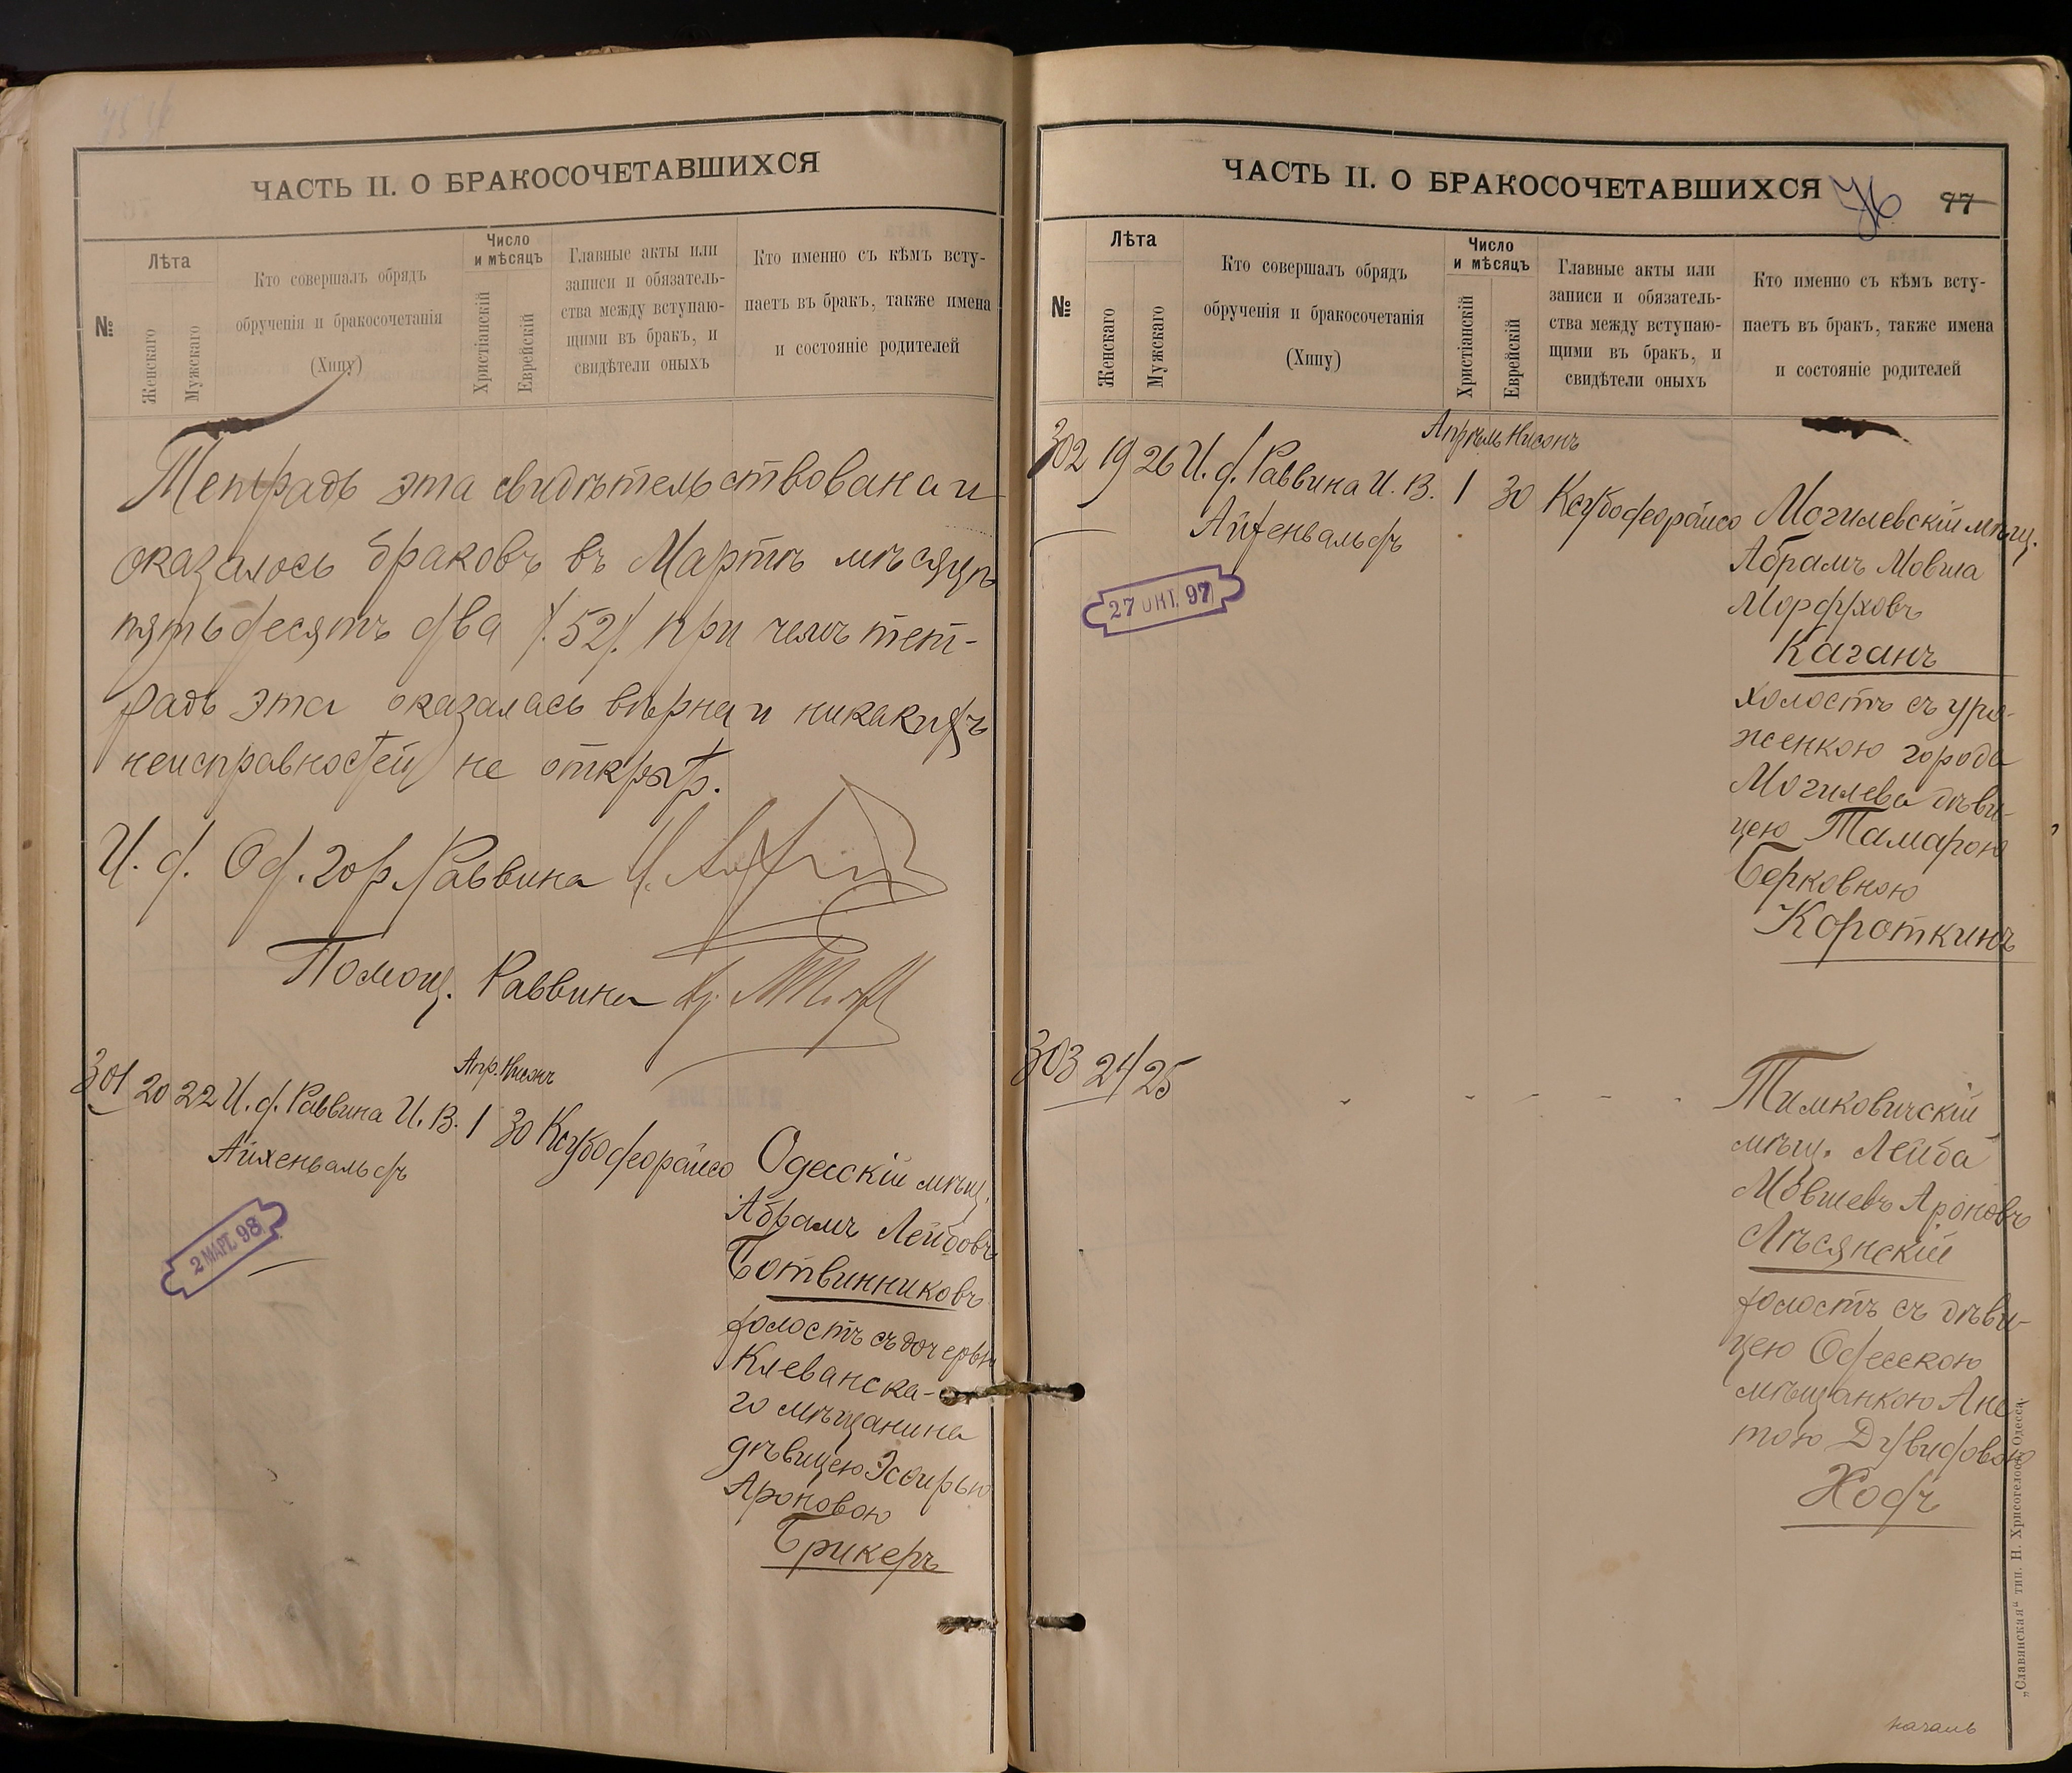 ЧАСТЬ II. О БРАКОСОЧЕТАВШИХСЯ
№
Лѣта
Женскаго
Мужскаго
Кто совершалъ обрядъ
обрученія и бракосочетанія
(Хипу)
Число
и мѣсяцъ
Христіанскій
Еврейскій
Главные акты или
записи и обязатель-
ства между вступаю-
щими въ бракъ, и
свидѣтели оныхъ
Кто именно съ кѣмъ всту-
паетъ въ бракъ, также имена
и состояніе родителей
Тетрадь эта свидѣтельствована и
оказалось браковъ въ Мартѣ мѣсяцѣ
пятьдесятъ два /.52/. при чемъ тет-
радь эта оказалась вѣрна и никакихъ
неисправностей не открыто.
И. д. Од. гор. Раввина
Помощ. Раввина
Апр. Нисанъ
301 20 22 И. д. Раввина И. В. 1 30 Ксубо деорайсо Одесскій мѣщ.
Айхенвальдъ
Абрамъ Лейбовъ
Ботвинниковъ
холостъ съ дочерью
Клеванска-
го мѣщанина
дѣвицею Эсфирью
Ароновою
Брикеръ
2 МАРТ. 98
ЧАСТЬ II. О БРАКОСОЧЕТАВШИХСЯ
76
77
№
Лѣта
Женскаго
Мужскаго
Кто совершалъ обрядъ
обрученія и бракосочетанія
(Хипу)
Число
и мѣсяцъ
Христіанскій
Еврейскій
Главные акты или
записи и обязатель-
ства между вступаю-
щими въ бракъ, и
свидѣтели оныхъ
Кто именно съ кѣмъ всту-
паетъ въ бракъ, также имена
и состояніе родителей
Апрѣль Нисанъ
302 19 26 И. д. Раввина И. В. 1 30 Ксубо деорайсо Могилевскій мѣщ.
Айхенвальдъ
27 ОКТ. 97
Абрамъ Мовша
Мордуховъ
Каганъ
холостъ съ уро-
женкою города
Могилева дѣви-
цею Тамарою
Берковною
Короткинъ
303 24 25 " " " " "
Тимковичскій
мѣщ. Лейба
Мовшевъ Ароновъ
Лѣсянскій
холостъ съ дѣви-
цею Одесскою
мѣщанкою Ане-
тою Дувидовою
Хофъ
„Славянская“ тип. Н. Хрисогелосъ, Одесса.